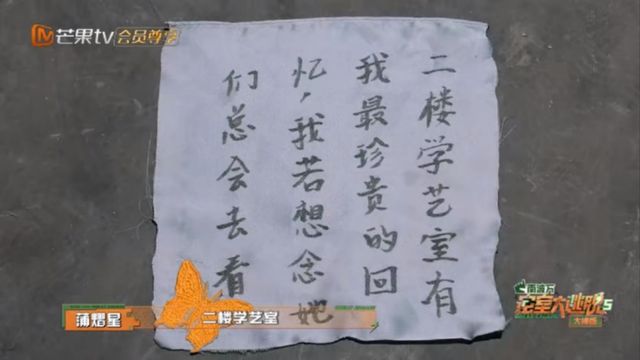 芒果tv 会员尊享
二楼学艺室有
我最珍贵的回
忆，我若想念她
们总会去看
蒲熠星
二楼学艺室
密室大逃脱5
大神版